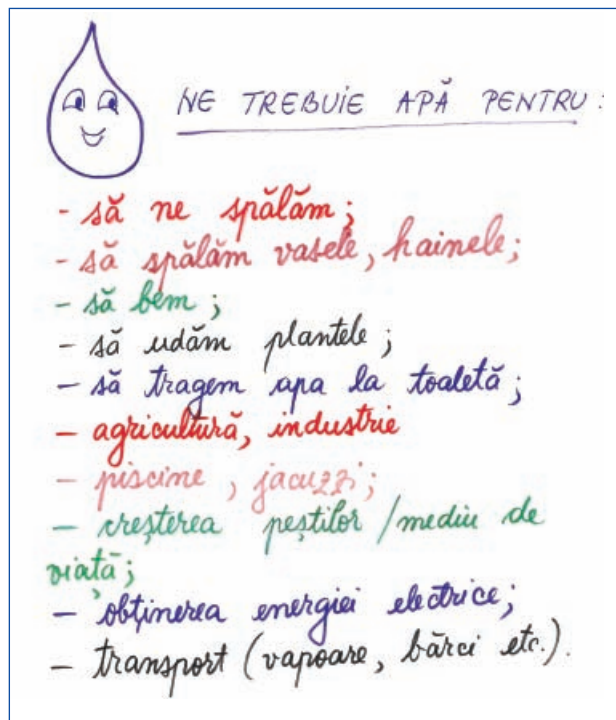 NE TREBUIE APĂ PENTRU:
- să ne spălăm;
- să spălăm vasele, hainele;
- să bem;
- să udăm plantele;
- să tragem apa la toaletă;
- agricultură, industrie
- piscine, jacuzzi;
- creșterea peștilor / mediu de
viață;
- obținerea energiei electrice;
- transport (vapoare, bărci etc.).